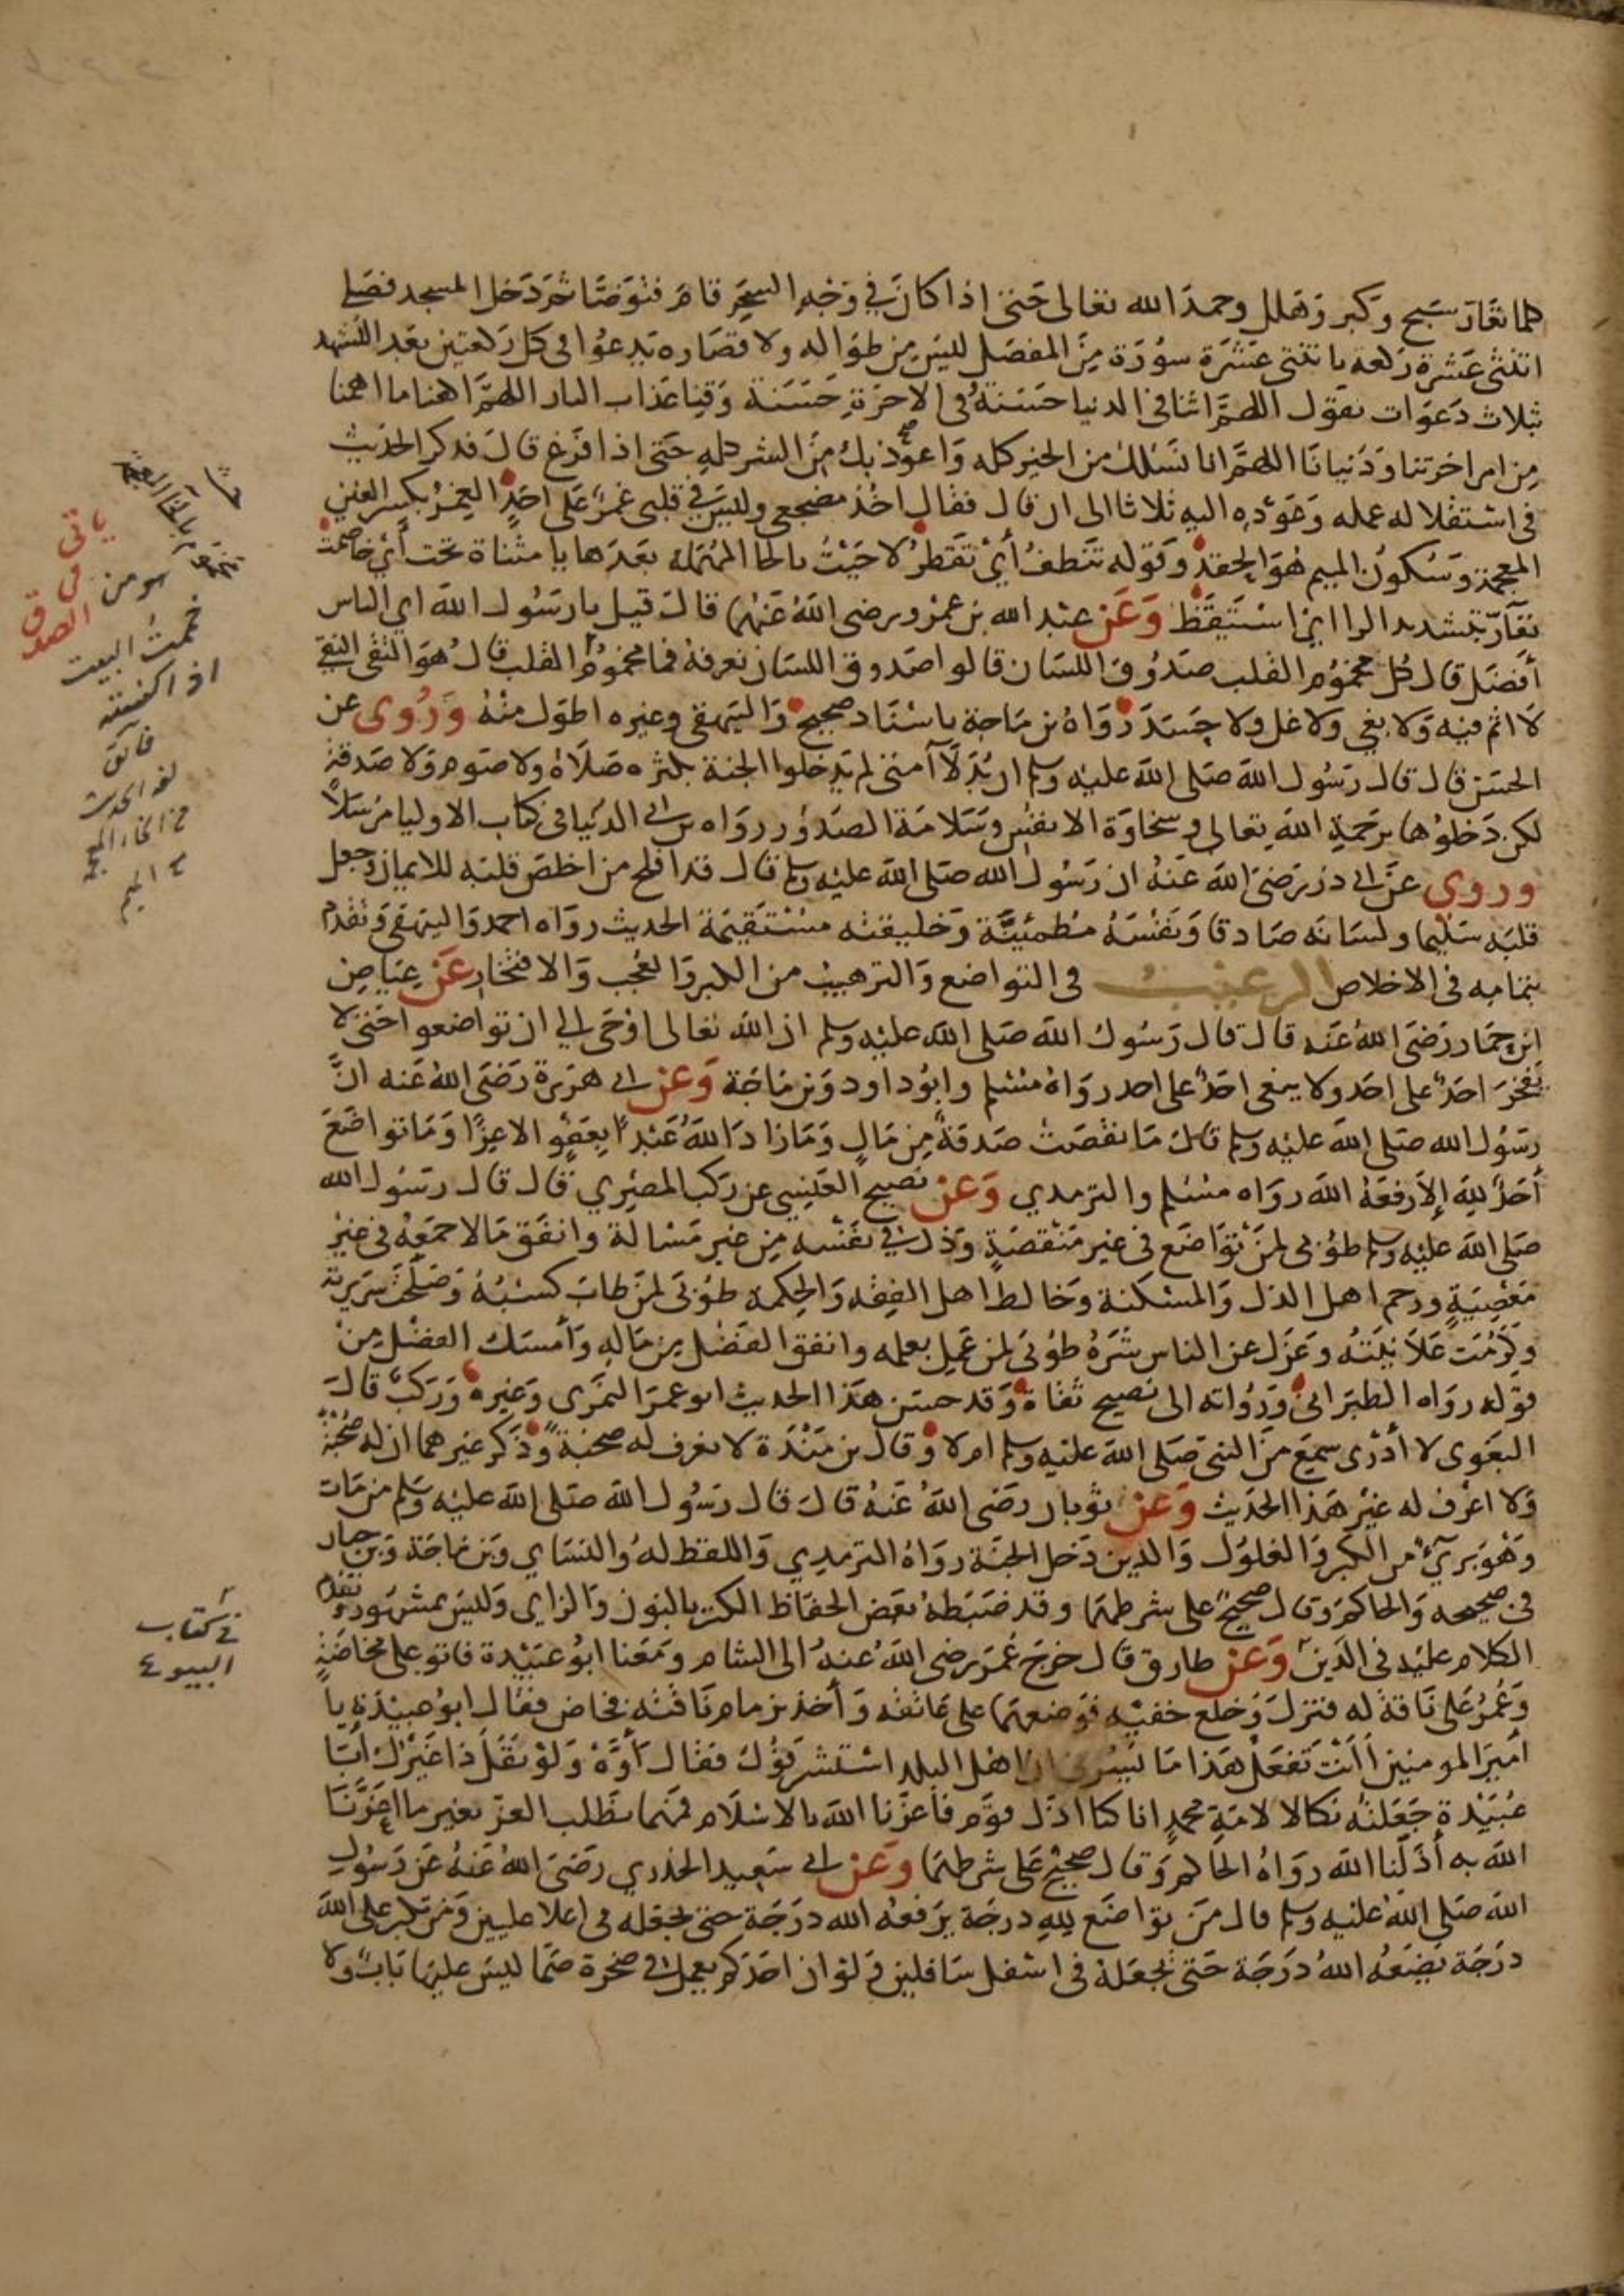 كلما تعَارّ سَبح وَكبر وَهلل وحمدَ الله تعَالى حَتى اذا كانَ في وَجْهِ السَّحَر قامَ فتوَضَّا ثم دَخل المسجد فصَلى
اثنتى عَشرةَ ركعة باثنتى عَشرَة سوُرَة مِنَ المفصَل ليسَ مِن طوَاله ولا قصَاره يَدعُوا في كل رَكعتين بَعد التشهد
ثلاث دَعوَات يقوَل اللهمَّ اتنا في الدنيا حسَنَة وفي الاخرَةِ حسَنَة وَقنا عَذاب النار اللهمَّ اكفنا ما اهمنا
مِن امر اخرتنا وَدُنيانا اللهمَّ انا نسَلك من الخير كله وَاعوُذ بك مِنَ الشر كلهِ حَتى اذا فرَغ قالَ فذكر الحدَيث
في اسْتقلاله عمله وَعَوْدِه اليهِ ثلاثا الى ان قال فقال اخُذ مضجعي وليسَ في قلبى غمرٌ على احَدٍ الغِمرُ بكسر الغين
المعجمة وَسُكوُن الميم هُوَ الحِقدُ وَقوله تَنطفُ أَيْ تَقطرُ لاحَيْتُ بالحا المهُمَلة بَعدَها يا مثناة تحت أَيْ خاصَمتُ
تعَآرّ بتشديد الرا اي اسْتَيقَظ وَعَن عبَد الله بن عمْرو رضى اللهُ عَنهُما قالَ قيل يا رَسُول اللهَ اي الناس
أفضَل قالَ كُل مخموُم القلب صَدُوق اللسَان قالوا صَدوق اللسَان نعرفهُ فما مخموُم القلب قالُ هوَ التقى النقي
لا اثم فيه وَلا بغي ولا غل ولا حِسَدَ رَوَاهُ بن مَاجة باسْنَاد صحيح وَالبَيهقى وغيره اطوَل منْهُ وَرُوى عن
الحسَن قال قال رَسُول اللهَ صَلى اللهَ عليْه وسلم ان بُدَلآَ أمتى لم يَدخلوا الجنة بكثره صَلَاة ولا صَوم وَلا صَدقةٍ
لكن دَخلوُها برَحمَةِ اللهِ تعالى وَسخاوَة الانفسُ وسَلامَة الصدوُر رواه بن ابي الدُنيا في كتاب الاوليا مرْسَلاً
وروى عن ابى ذر رَضىَ اللهَ عَنهُ ان رَسُول الله صَلى اللهَ عليْه وسلم قال قد افلح من اخلصَ قلبَه للايمان وجعل
قلبَه سَلِيما ولسَانَه صَادقا وَنَفسَهُ مُطمئِنَّة وَخليقتَه مسْتقيَمَة الحديث روَاه احمد وَالبَيهقى وَتقدم
بتمامه في الاخلاص الترغيب في التواضع وَالترهيب من الكبر وَالعُجب وَالافتخار عَن عِيَاض بن
حِمَار رَضىَ اللهُ عَنه قالَ قال رَسُولَ اللهَ صَلى اللهَ عليْه وَسلم ان اللهَ تعَالى اوْحَى الي ان توَاضعوا حَتى لا
يَفخرَ احَدٌ على احَد ولا يبغى احَدٌ على احد روَاهُ مسْلِم وابوُ داود وَبن مَاجَة وَعَن ابى هرَيرَة رَضىَ اللهُ عَنه انَّ
رسَوُل الله صَلى اللهَ عليْه وسلم قالَ مَا نقصَت صَدقةٌ مِن مَالٍ وَمَا زَادَ اللهَُ عَبْدًا بِعَفْوٍ الا عِزًّا وَمَا توَاضَعَ
أحَدٌ لِلهِ إِلا رَفعَهُ اللهَ روَاه مسْلِم والترمدي وَعَن نصيح العَنِسي عن رَكب المصِري قال قال رسَوُل الله
صَلى اللهَ عليْه وسلم طوُبى لمنْ توَاضَع في غير مَنْقصَةٍ وَذل في نفَسْه مِن غير مَسْالَة وانفَق مَالا جمَعهُ في غيْر
مَعْصِيَةٍ ورحم اهل الذل وَالمسْكنة وَخَالط اهل الفِقه وَالحِكمة طوُبى لمن طابَ كسْبُهُ وَصَلُحَت سَرِيرتهُ
وَكَرُمَت عَلاَنيَتهُ وَعَزل عن الناس شَرَّهُ طوُبَى لمن عَمِل بعلمه وانفق الفَضْل مِن مَاله وَأمسَك الفَضْل مِنْ
قوْله روَاه الطبَرانى وَرُوَاته الى نصيح ثقاة وَقد حسَن هَذا الحديث ابو عمَرَ النمَرى وَغيره وَرَكبٌ قالَ
البغَوى لا أَدْرى سمِعَ منَ النبى صَلى اللهَ عليْه وسلم ام لا وَقال بن مَنْدَة لا يعَرف له صحُبَة وَذكرَ غيرهما ان له صُحْبَةً
وَلا اعرْف له غيَر هَذا الحدَيث وَعَن ثوَبان رضَى اللهُ عَنهُ قالَ قال رسَوُل الله صَلى اللهَ عليْه وَسَلم من مَات
وَهْوَ بَريٌ من الكبر وَالغلوُل وَالدين دَخل الجنَة روَاهُ الترمدِي وَاللفظ لهُ والنسَاي وَبن مَاجَة وَبن حبان
في صَحيحه وَالحاكمُ وَقال صَحيحٌ على شرطهمَا وقد ضبَطهُ بعَض الحفاظ الكنز بالنون وَالزاي وَليسَ بمشهوُر وتقدم
الكلام عليهِ في الدَينَ وَعَن طارق قال خرجَ عُمَرُ رضى اللهُ عنهُ الى الشام وَمَعَنا ابوُ عبَيْدة فاتوَ على مخاضَةٍ
وَعُمَرُ على نَاقة له فنزلَ وَخلع خفيْه فوَضعهَما على عَاتقه وَأَخذ بزمام نَاقته فخاض فقال ابوُ عبيْدَة يا
أميرَ المومنينَ أأنْتَ تَفعَلُ هَذا مَا يَسُرني ان اهل البلد اسْتشرَفوُكَ فقال أَوَّهْ وَلوْ يقَلْ ذا غَيرُكَ أبَا
عُبَيْدةِ جَعَلتهُ نكالا لامَّةِ محمدٍ انا كنا اذَل قوَمٍ فأعَزنا اللهَ بالاسْلَام فمهَما نطَلب العزّ بغير ما اعَزنَا
اللهَ به أَذلنا الله روَاهُ الحاكم وَقال صَحيحٌ على شرطهَما وَعَن ابى سَعِيد الخدري رَضىَ اللهُ عَنهُ عَن رَسُول
اللهَ صَلى اللهُ عليْه وسلم قال مَن توَاضَع لِلهِ درجَة يَرفعهُ الله درَجَة حتى يجعَله في اعلا عليين وَمَن تكبر على الله
درَجَة يَضَعُهُ اللهُ دَرَجَة حَتى يجَعَلهُ في اسْفل سَافلين وَ لوْ ان احَدَكم يعمل في صَخرة صَمَّا ليسَ عليهَا بَابٌ ولا
ياتى
في
الصدق
هو من
خممتُ البيت
اذا كنسته
في كتاب
البيوع